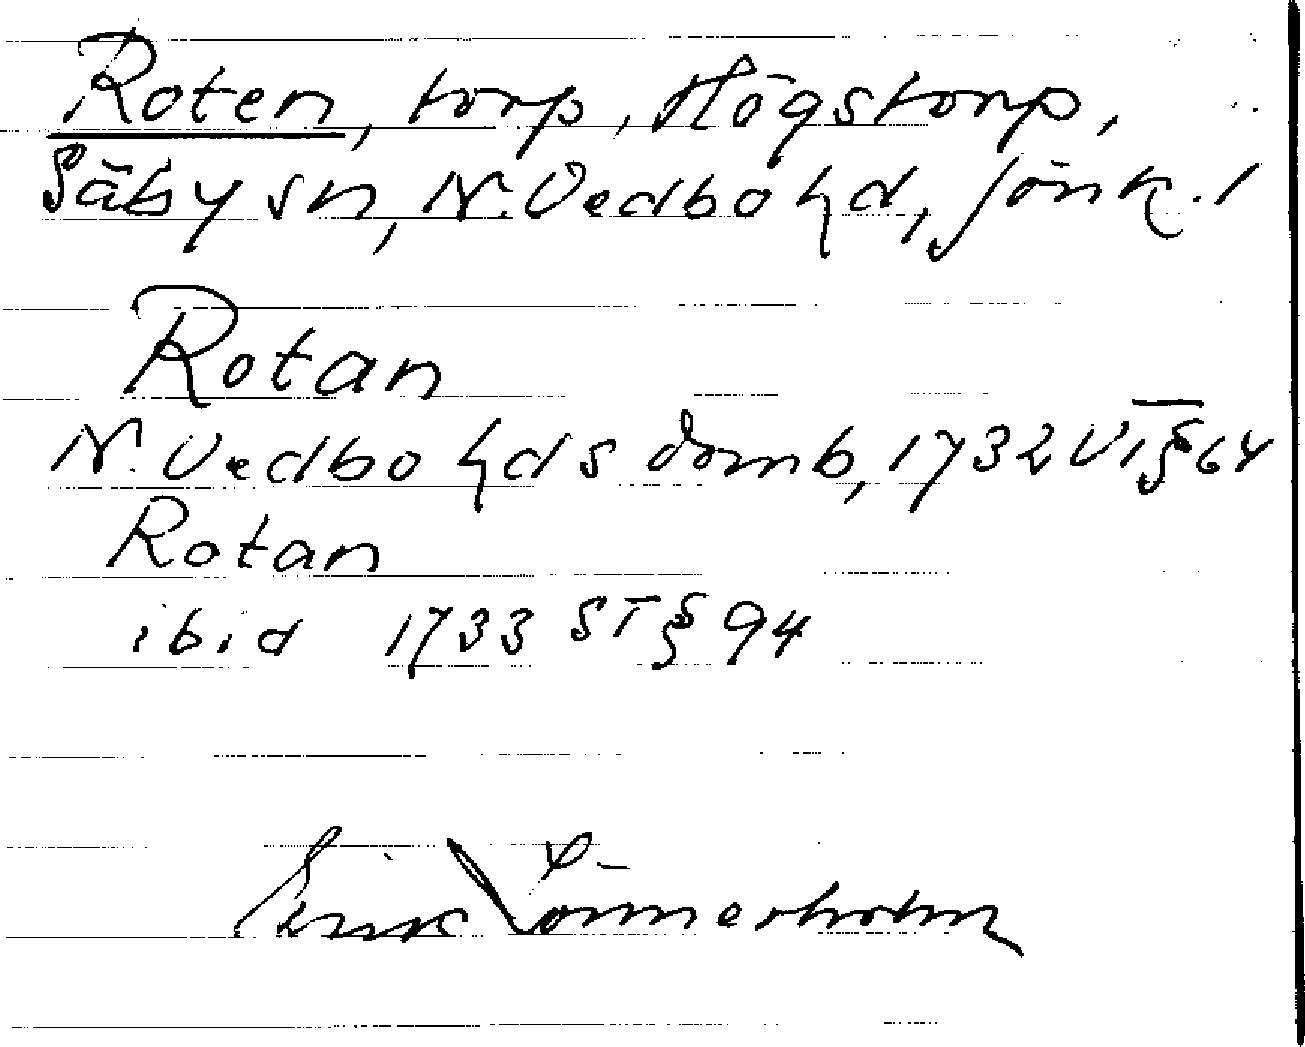 Roten, torp, Högstorp,
Säby sn, N. Vedbo hd, Jönk. l
Rotan
N. Vedbo hds domb, 1732 VT § 64
Rotan
ibid 1733 ST § 94
Erik Lönnerholm